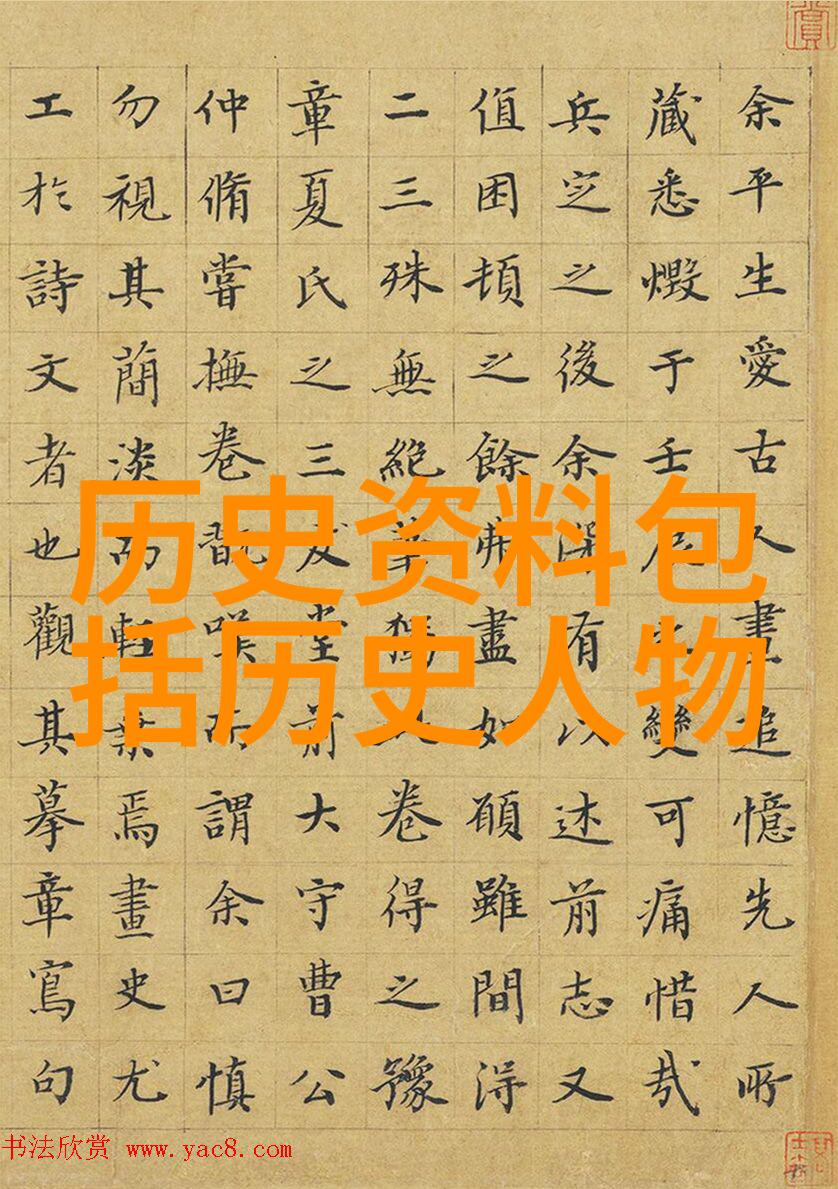 历史资料包
括历史人物
余平生愛古人畫追憶先人所
藏悉燬于壬辰之變可痛惜哉
兵定之後余深有以述前志又
值困頓之餘弗盡如願雖間得
二三殊無絕卷得之豫
章夏氏之三友堂前大守曹公
仲脩嘗撫卷翫嘆而謂余曰慎
勿視其簡淡而輕棄焉畫史尤
工於詩文者也觀其摹章寫句
书法欣赏 www.yac8.com